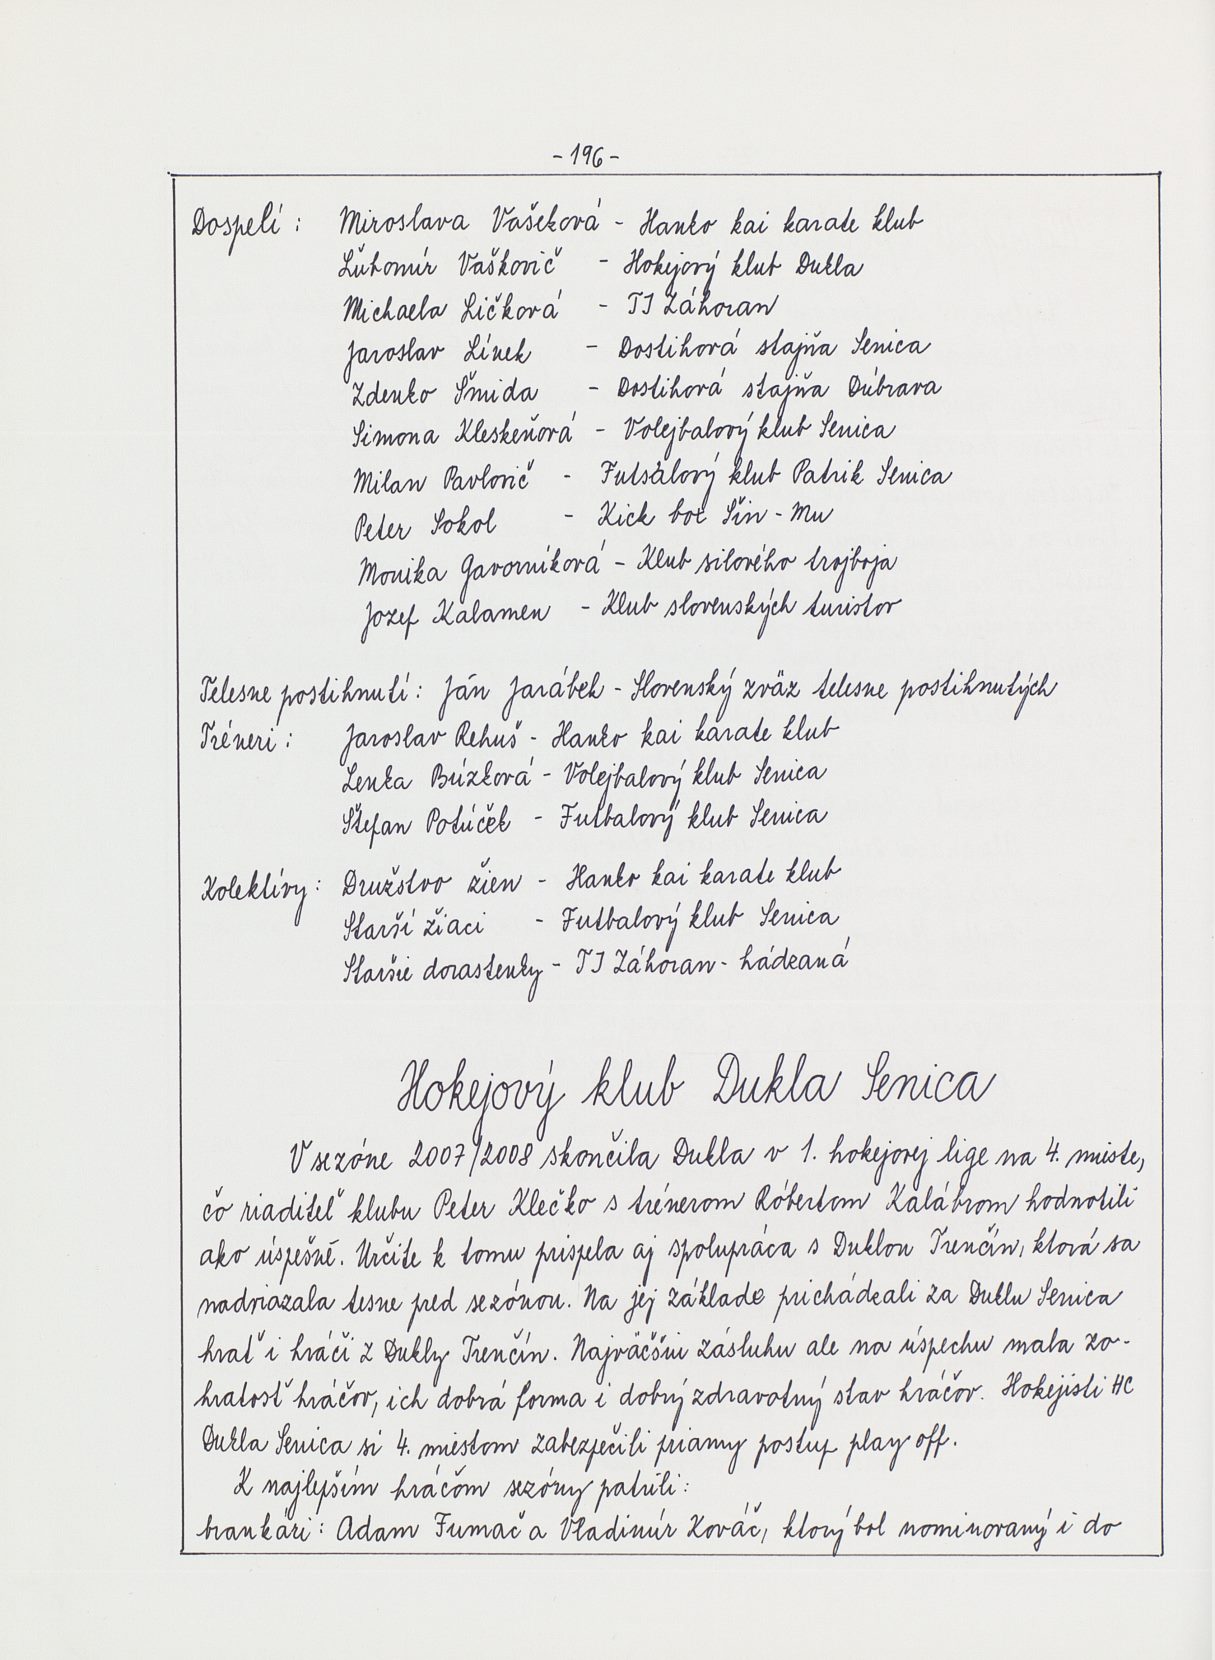 - 196 -
Dospelí : Miroslava Vašeková - Hanko kai karate klub
Ľubomír Vaškovič - Hokejový klub Dukla
Michaela Ličková - TJ Záhoran
Jaroslav Línek - Dostihová stajňa Senica
Zdenko Šmida - Dostihová stajňa Dúbrava
Simona Kleskeňová - Volejbalový klub Senica
Milan Pavlovič - Futsalový klub Patrik Senica
Peter Sokol - Kick box Šin - Mu
Monika Gavorníková - Klub silového trojboja
Jozef Kalamen - Klub slovenských turistov
Telesne postihnutí : Ján Jarábek - Slovenský zväz telesne postihnutých
Tréneri : Jaroslav Rehuš - Hanko kai karate klub
Lenka Búzková - Volejbalový klub Senica
Štefan Potúček - Futbalový klub Senica
Kolektívy : Družstvo žien - Hanko kai karate klub
Starší žiaci - Futbalový klub Senica
Staršie dorastenky - TJ Záhoran - hádzaná
Hokejový klub Dukla Senica
V sezóne 2007/2008 skončila Dukla v 1. hokejovej lige na 4. mieste,
čo riaditeľ klubu Peter Klečko s trénerom Róbertom Kalábrom hodnotili
ako úspešné. Určite k tomu prispela aj spolupráca s Duklou Trenčín, ktorá sa
nadviazala tesne pred sezónou. Na jej základe prichádzali za Duklu Senica
hrať i hráči z Dukly Trenčín. Najväčšiu zásluhu ale na úspechu mala zo-
hratosť hráčov, ich dobrá forma i dobrý zdravotný stav hráčov. Hokejisti HC
Dukla Senica si 4. miestom zabezpečili priamy postup play off.
K najlepším hráčom sezóny patrili :
brankári : Adam Fumač a Vladimír Kováč, ktorý bol nominovaný i do